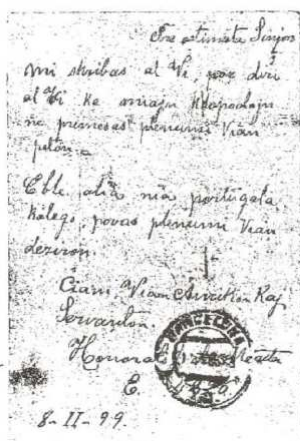 Tre estimata Sinjor
mi skribas al Vi, por diri
al Vi ke miaju
ne permesas plenumi Vian
peton.
Eble, alia nia portugala
kolego, povas plenumi Vian
deziron.
Ĉiam Vian Amikon Kaj
Servanton.
Honorat
E.
8-II-99.